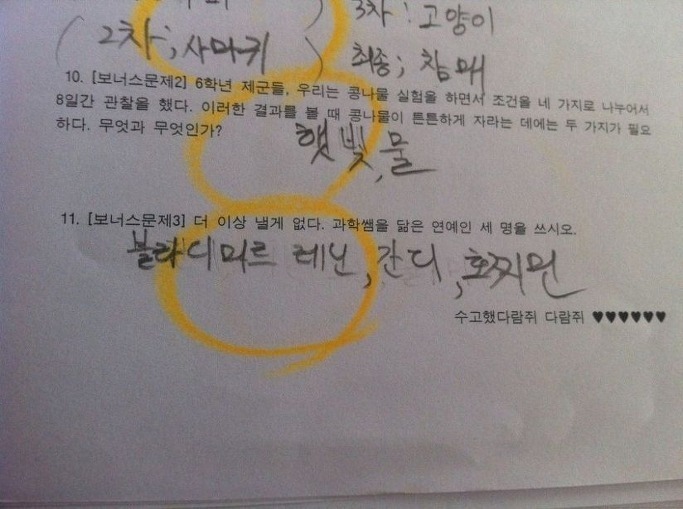 3차 : 고양이
( 2차; 사마귀 ) 최종; 참매
10. [보너스문제2] 6학년 제군들, 우리는 콩나물 실험을 하면서 조건을 네 가지로 나누어서
8일간 관찰을 했다. 이러한 결과를 볼 때 콩나물이 튼튼하게 자라는 데에는 두 가지가 필요
하다. 무엇과 무엇인가?
햇빛, 물
11. [보너스문제3] 더 이상 낼게 없다. 과학쌤을 닮은 연예인 세 명을 쓰시오.
블라디미르 레닌, 간디, 호찌민
수고했다람쥐 다람쥐 ♥♥♥♥♥♥